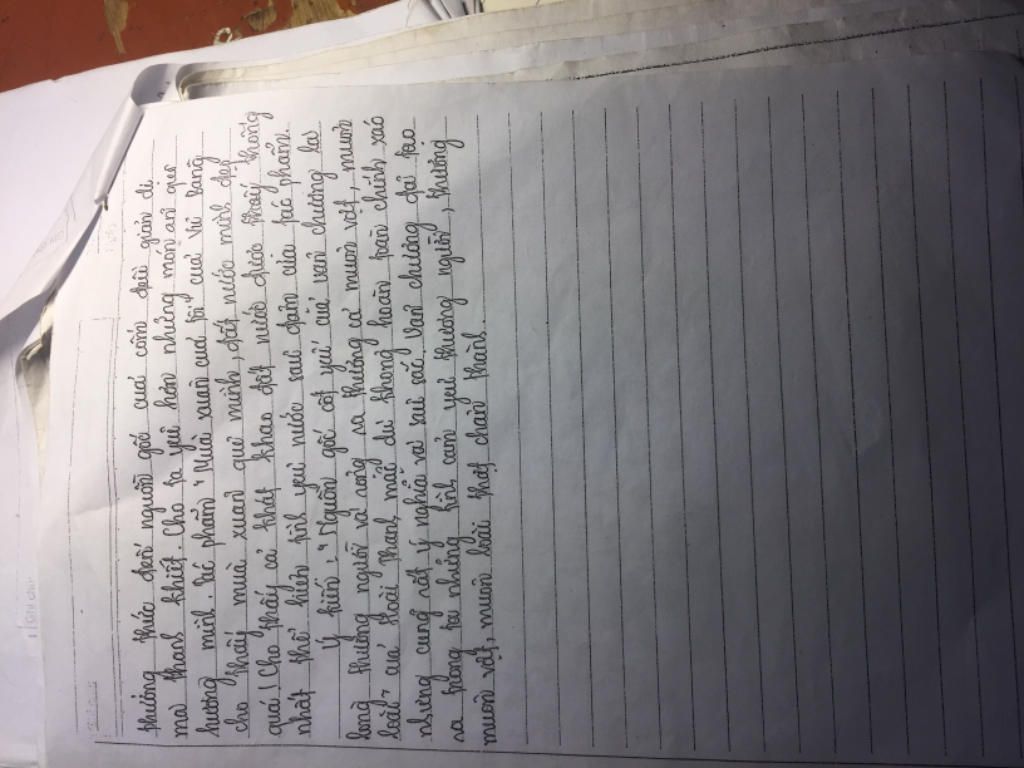 thưởng thức đến nguồn gốc cuả cốm dẫu giản dị
mà thanh khiết. Cho ta yêu hơn những món ăn quê
hương mình. Tác phẩm "Mùa xuân cuả tôi" cuả Vũ Bằng
cho thấy mùa xuân quê mình, đất nước mình đẹp
quá! Cho thấy cả thật khao đất nước được thấy không
nhất thể hiện tình yêu nước sâu đậm của tác phẩm.
Ý kiến: "Nguồn gốc cốt yếu cuả văn chương là
lòng thương người và rộng ra thương cả muôn vật, muôn
loài" cuả Hoài Thanh, mặc dù không hoàn toàn chính xác
nhưng cũng rất ý nghĩa và sâu sắc. Văn chương đã tạo
ra trong ta những tình cảm yêu thương người, thương
muôn vật, muôn loài thật chân thành.